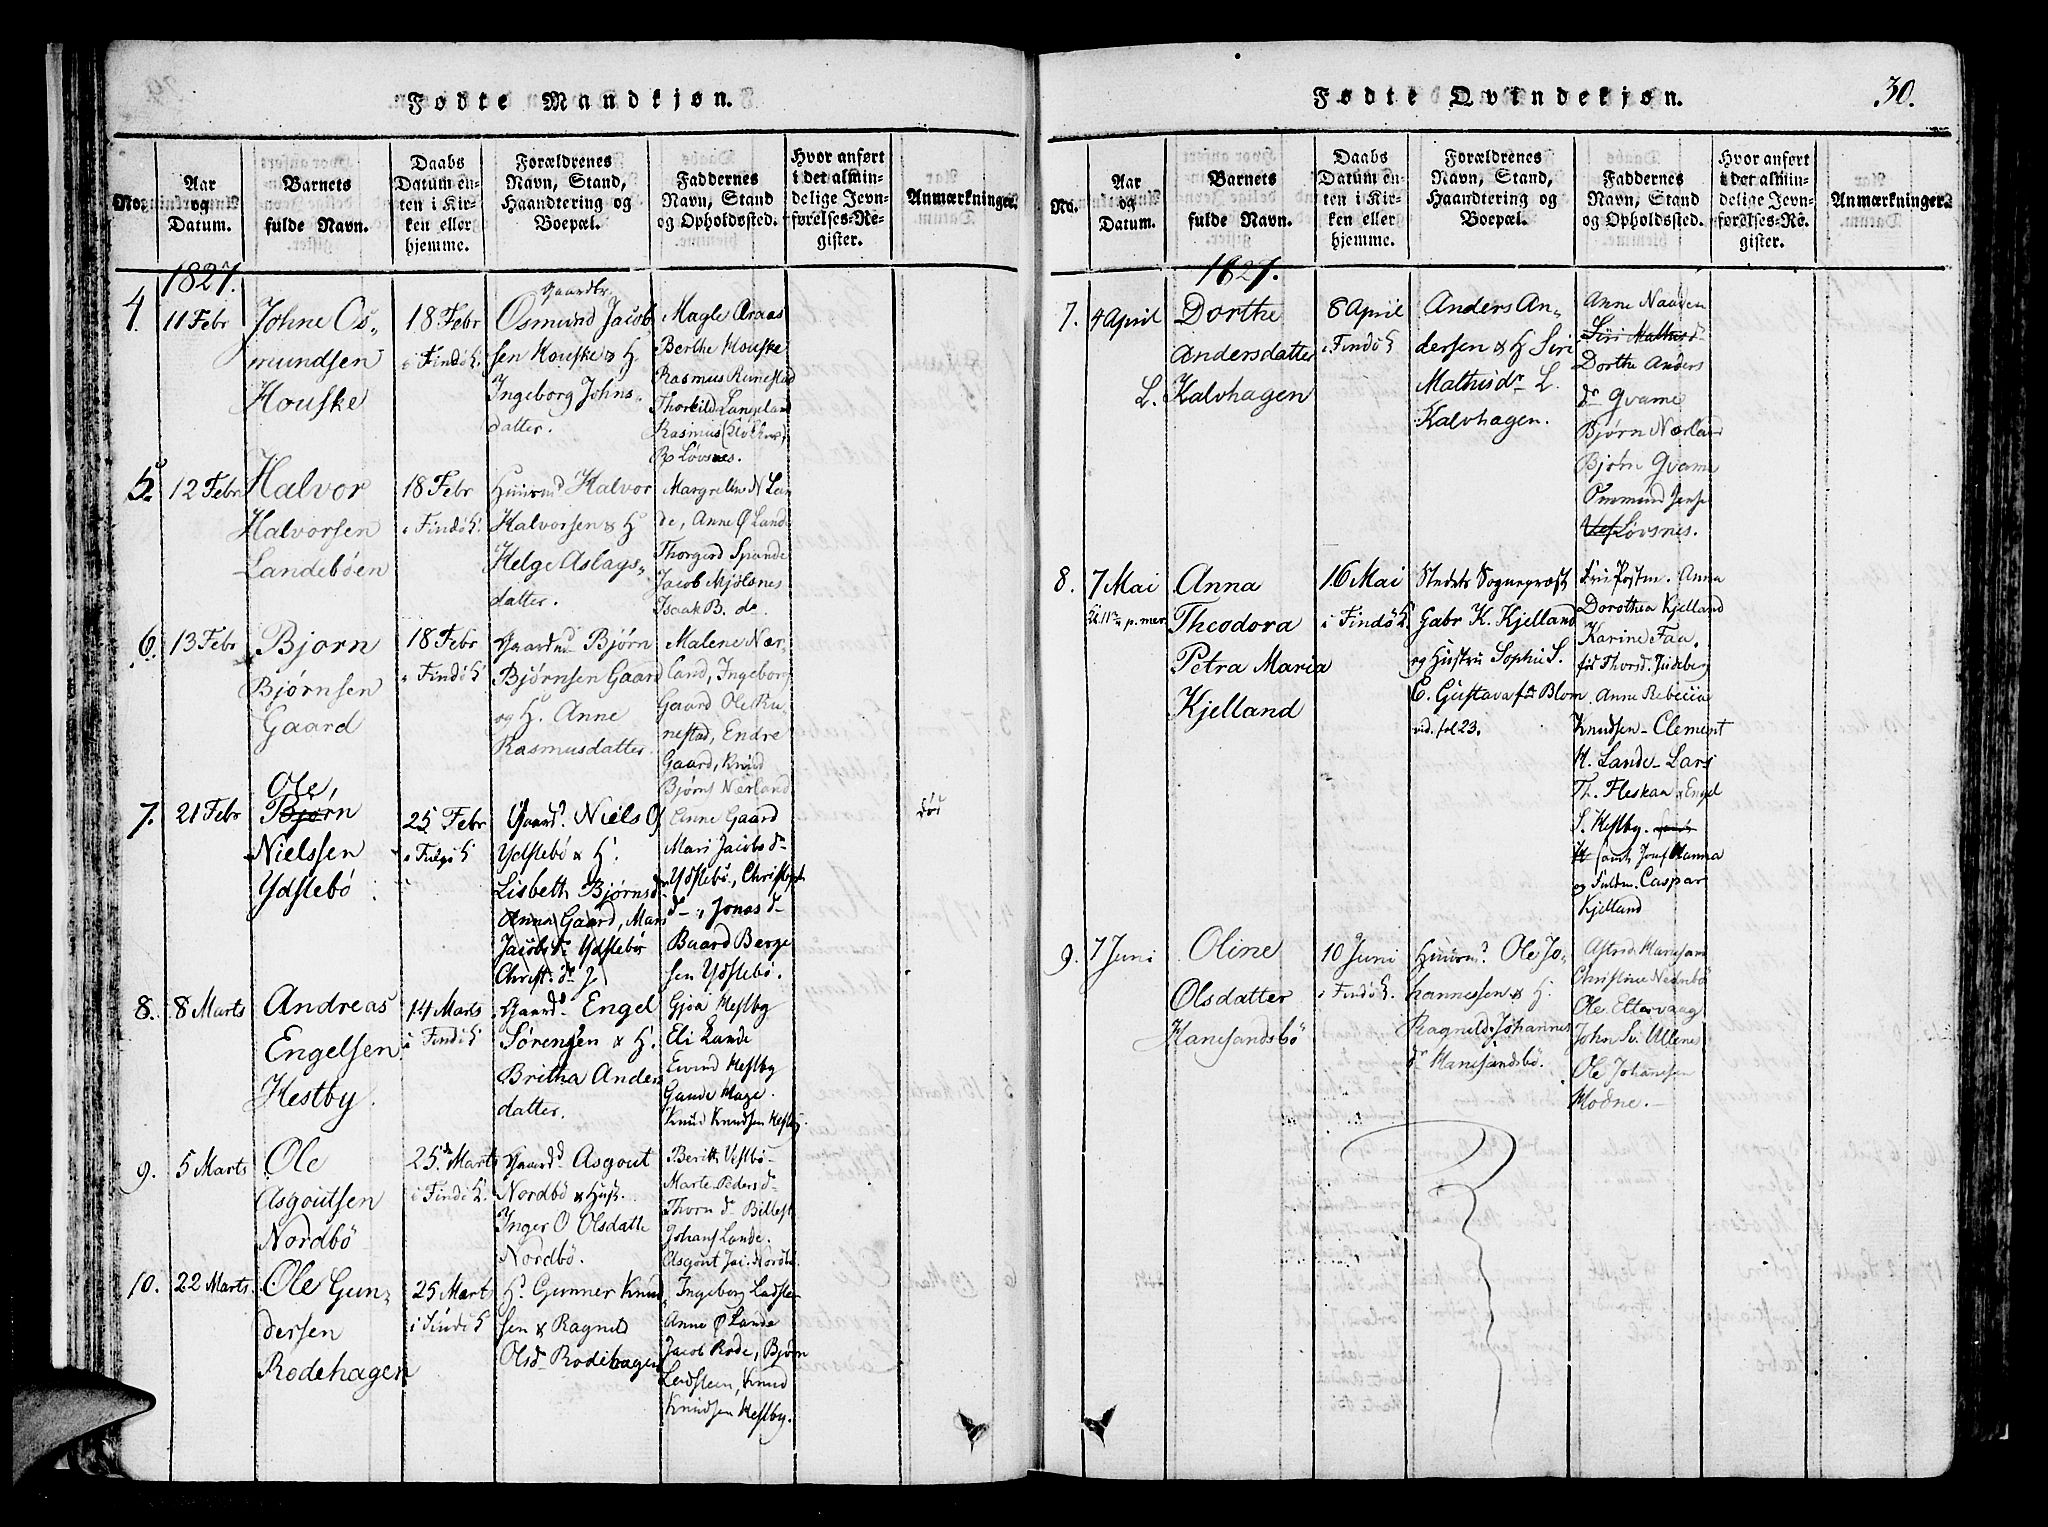 Fødte Mandkjøn.
No.
Aar
og
Datum.
Barnets
fulde Navn.
Daabs
Datum en-
ten i Kir-
ken eller
hjemme.
Forældrenes
Navn, Stand,
Haandtering og
Boepæl.
Faddernes
Navn, Stand
og Opholdssted.
Hvor anført
i det almin-
delige Jevn-
førelses-Re-
gister.
Anmærkninger.
1827.
4.
11 Febr
Johne Os-
mundsen
Houske
18 Febr
i Findö K.
Gaardbr.
Osmund Jacob
sen Houske & H.
Ingeborg Johns-
datter.
Magle Araas
Berthe Houske
Rasmus Runestad
Thorkild Langeland
Rasmus
R. Løvsnes.
5.
12 Febr
Halvor
Halvorsen
Landebøen
18 Febr
i Findö K.
Huusmd Halvor
Halvorsen & H
Helge Aslags-
datter.
Margrethe N Lan
de, Anne Ø Lande
Thorgerd Spande
Jacob Mjølsnes
Isaak B. do.
6.
13 Febr
Bjørn
Bjørnsen
Gaard
18 Febr
i Findö K
Gaardmd Bjørn
Bjørnsen Gaard
og H. Anne
Rasmusdatter.
Malene Nær-
land, Ingeborg
Gaard Ole Ru
nestad, Endre
Gaard, Knud
Bjørns Nærland
7.
21 Febr
Ole,
Bjørn
Nielssen
Ydstebö
25 Febr
i Fulgö K
Gaardd. Niels O
Ydstebö & H.
Lisbeth Bjørnsd
Anna Gaard, Mari
Jacobsdr Ydstebör
Christ. dr J
Anne Gaard
Mari Jacobs dr
Ydstebö, Christoph
dr, Jonas dr
Baard Berge
sen Ydstebö.
død
8.
8 Marts
Andreas
Engelsen
Hestby.
14 Marts
i Findö K
Gaardd. Engel
Sörensen & H.
Britha Anders
datter.
Gjøa Hestby
Eli Lande
Eivind Hestby
Gaude Hage.
Knud Knudsen Hestby.
9.
5 Marts
Ole
Asgoutsen
Nordbö
25de Marts
i Findö K.
Gaardd. Asgout
Nordbö & Hust.
Inger O Olsdatt
Nordbö.
Berith Vestbö
Marte Peders dr
Thorn dr Billest
Johans Lande.
Asgout Jac. Nordbö
10.
22 Marts.
Ole Gun-
dersen
Rodehagen
25 Mart
i Findö K
H. Gunner Knud
sen & Ragnild
Olsdr Rodehagen
Ingeborg Ladsten
Anne Ø Lande
Jacob Rode, Bjørn
Ladsteen, Knud
Knudsen Hestby.
30.
Fødte Qvindekjøn.
No.
Aar
og
Datum.
Barnets
fulde Navn.
Daabs
Datum en-
ten i Kir-
ken eller
hjemme.
Forældrenes
Navn, Stand,
Haandtering og
Boepæl.
Faddernes
Navn, Stand
og Opholdssted.
Hvor anført
i det almin-
delige Jevn-
førelses-Re-
gister.
Anmærkninger.
1827.
7.
4 April
Dorthe
Andersdatter
L. Kalvhagen
8 April
i Findö K
Anders An-
dersen & H Siri
Mathisdr L.
Kalvhagen.
Anne Naaden
Siri Mathis dr
Dorthe Anders
dr Gvame
Bjørn Nærland
Bjørn Gvame
Ommund Jense
Ves Løvsnes.
8.
7 Mai
p. mer.
Anna
Theodora
Petra Maria
Kjelland
16 Mai
i Findö K.
Stedets Sognepræst
Gabr K. Kjelland
og Hustru Sophie S.
C. Gustava f. Blom
vid. fol 23.
Anna
Dorothea Kjelland
Karine
Anne Rebecca
Knudsen - Clement
H. Lande - Lars
Th. Fleskaa & Engel
S. Hestby.
samt Jomf Hanna
og Fuldm. Caspar
Kjelland
9.
7 Juni
Oline
Olsdatter
Hanesandsbö
10 Juni
i Findö K.
Huusmd. Ole Jo-
hannessen & H.
Ragnild Johannes
dr Hanesandsbö.
Astrid Hanesand
Christine Nedrebö
Ole Eltervaag
John Sv. Ullenes
Ole Johansen
Modne.